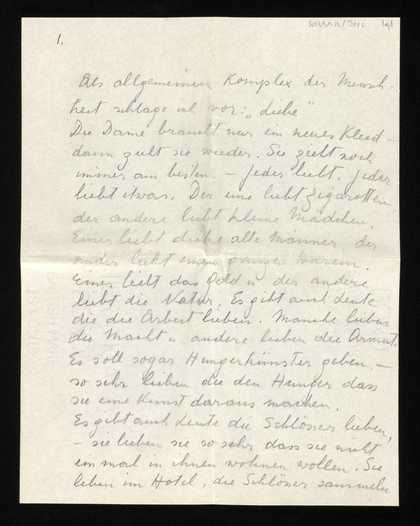 1.
Als allgemeinen Komplex der Mensch-
heit schlage ich vor: „Liebe"
Die Dame braucht nur ein neues Kleid –
dann geht sie wieder. Sie zieht noch
immer am besten. – Jeder liebt. Jeder
liebt etwas. Der eine liebt Zigaretten
der andere liebt kleine Mädchen
Einer liebt dicke alte Männer, der
ander liebt einen ganzen Harem.
Einer liebt das Geld u der andere
liebt die Natur. Es gibt auch Leute
die die Arbeit lieben. Manche lieben
die Macht u andere lieben die Armut.
Es soll sogar Hungerkünstler geben –
so sehr lieben die den Hunger dass
sie eine Kunst daraus machen.
Es gibt auch Leute die Schlösser lieben,
– sie lieben sie so sehr dass sie nicht
einmal in ihnen wohnen wollen. Sie
leben im Hotel, die Schlösser sammeln